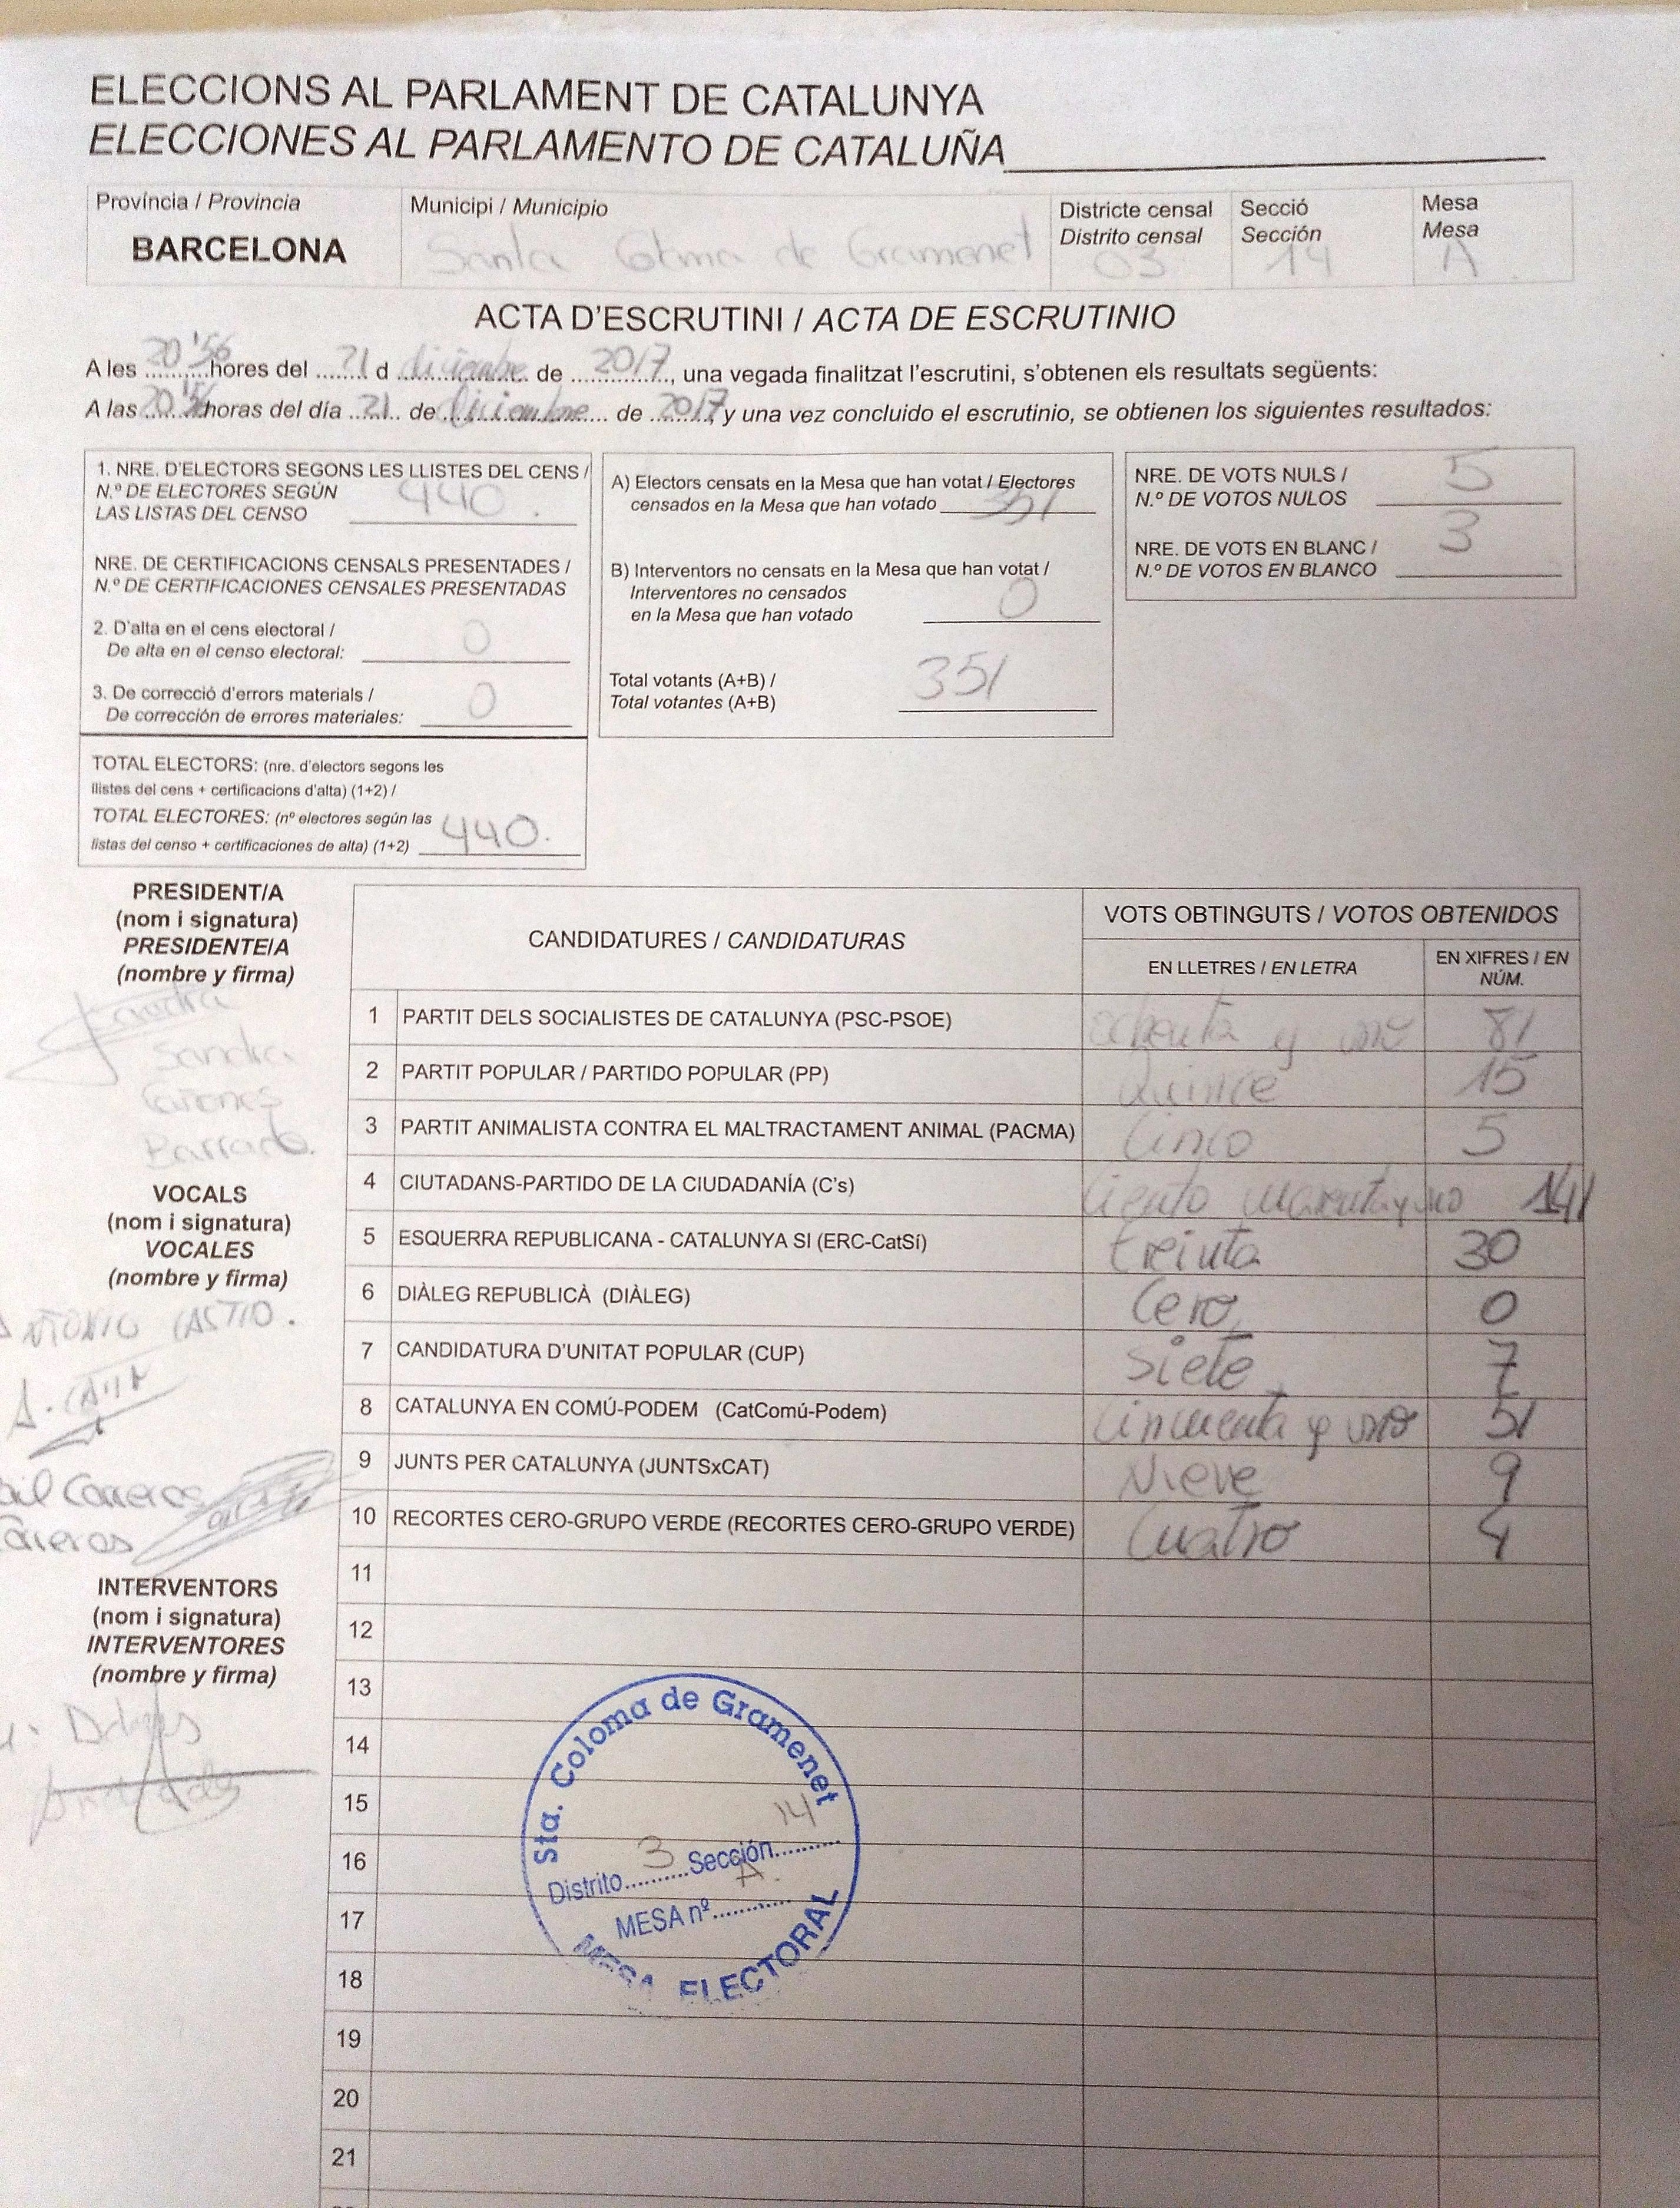 ELECCIONS AL PARLAMENT DE CATALUNYA
ELECCIONES AL PARLAMENTO DE CATALUÑA
Província / Provincia
BARCELONA
Municipi / Municipio
Santa Coloma de Gramenet
Districte censal
Distrito censal
03
Secció
Sección
14
Mesa
Mesa
A
ACTA D'ESCRUTINI / ACTA DE ESCRUTINIO
A les 20'56 hores del 21 d diciembre de 2017, una vegada finalitzat l'escrutini, s'obtenen els resultats següents:
A las 20'56 horas del día 21 de diciembre de 2017 y una vez concluido el escrutinio, se obtienen los siguientes resultados:
1. NRE. D'ELECTORS SEGONS LES LLISTES DEL CENS /
N.º DE ELECTORES SEGÚN
LAS LISTAS DEL CENSO 440.
NRE. DE CERTIFICACIONS CENSALS PRESENTADES /
N.º DE CERTIFICACIONES CENSALES PRESENTADAS
2. D'alta en el cens electoral /
De alta en el censo electoral: 0
3. De correcció d'errors materials /
De corrección de errores materiales: 0
TOTAL ELECTORS: (nre. d'electors segons les
llistes del cens + certificacions d'alta) (1+2) /
TOTAL ELECTORES: (nº electores según las
listas del censo + certificaciones de alta) (1+2) 440.
A) Electors censats en la Mesa que han votat / Electores
censados en la Mesa que han votado 351
B) Interventors no censats en la Mesa que han votat /
Interventores no censados
en la Mesa que han votado 0
Total votants (A+B) /
Total votantes (A+B) 351
NRE. DE VOTS NULS /
N.º DE VOTOS NULOS 5
NRE. DE VOTS EN BLANC /
N.º DE VOTOS EN BLANCO 3
PRESIDENT/A
(nom i signatura)
PRESIDENTE/A
(nombre y firma)
Sandra
Sandra
Cañones
Barrado.
VOCALS
(nom i signatura)
VOCALES
(nombre y firma)
ANTONIO CASTIO.
Carreros
INTERVENTORS
(nom i signatura)
INTERVENTORES
(nombre y firma)
CANDIDATURES / CANDIDATURAS
VOTS OBTINGUTS / VOTOS OBTENIDOS
EN LLETRES / EN LETRA
EN XIFRES / EN NÚM.
1 PARTIT DELS SOCIALISTES DE CATALUNYA (PSC-PSOE) ochenta y uno 81
2 PARTIT POPULAR / PARTIDO POPULAR (PP) Quince 15
3 PARTIT ANIMALISTA CONTRA EL MALTRACTAMENT ANIMAL (PACMA) Cinco 5
4 CIUTADANS-PARTIDO DE LA CIUDADANÍA (C's) Ciento cuarenta y uno 141
5 ESQUERRA REPUBLICANA - CATALUNYA SI (ERC-CatSí) treinta 30
6 DIÀLEG REPUBLICÀ (DIÀLEG) Cero 0
7 CANDIDATURA D'UNITAT POPULAR (CUP) siete 7
8 CATALUNYA EN COMÚ-PODEM (CatComú-Podem) Cincuenta y uno 51
9 JUNTS PER CATALUNYA (JUNTSxCAT) Nueve 9
10 RECORTES CERO-GRUPO VERDE (RECORTES CERO-GRUPO VERDE) Cuatro 4
11
12
13
14
15
16
17
18
19
20
21
Sta. Coloma de Gramenet
Distrito 3 Sección 14
MESA nº A.
MESA ELECTORAL